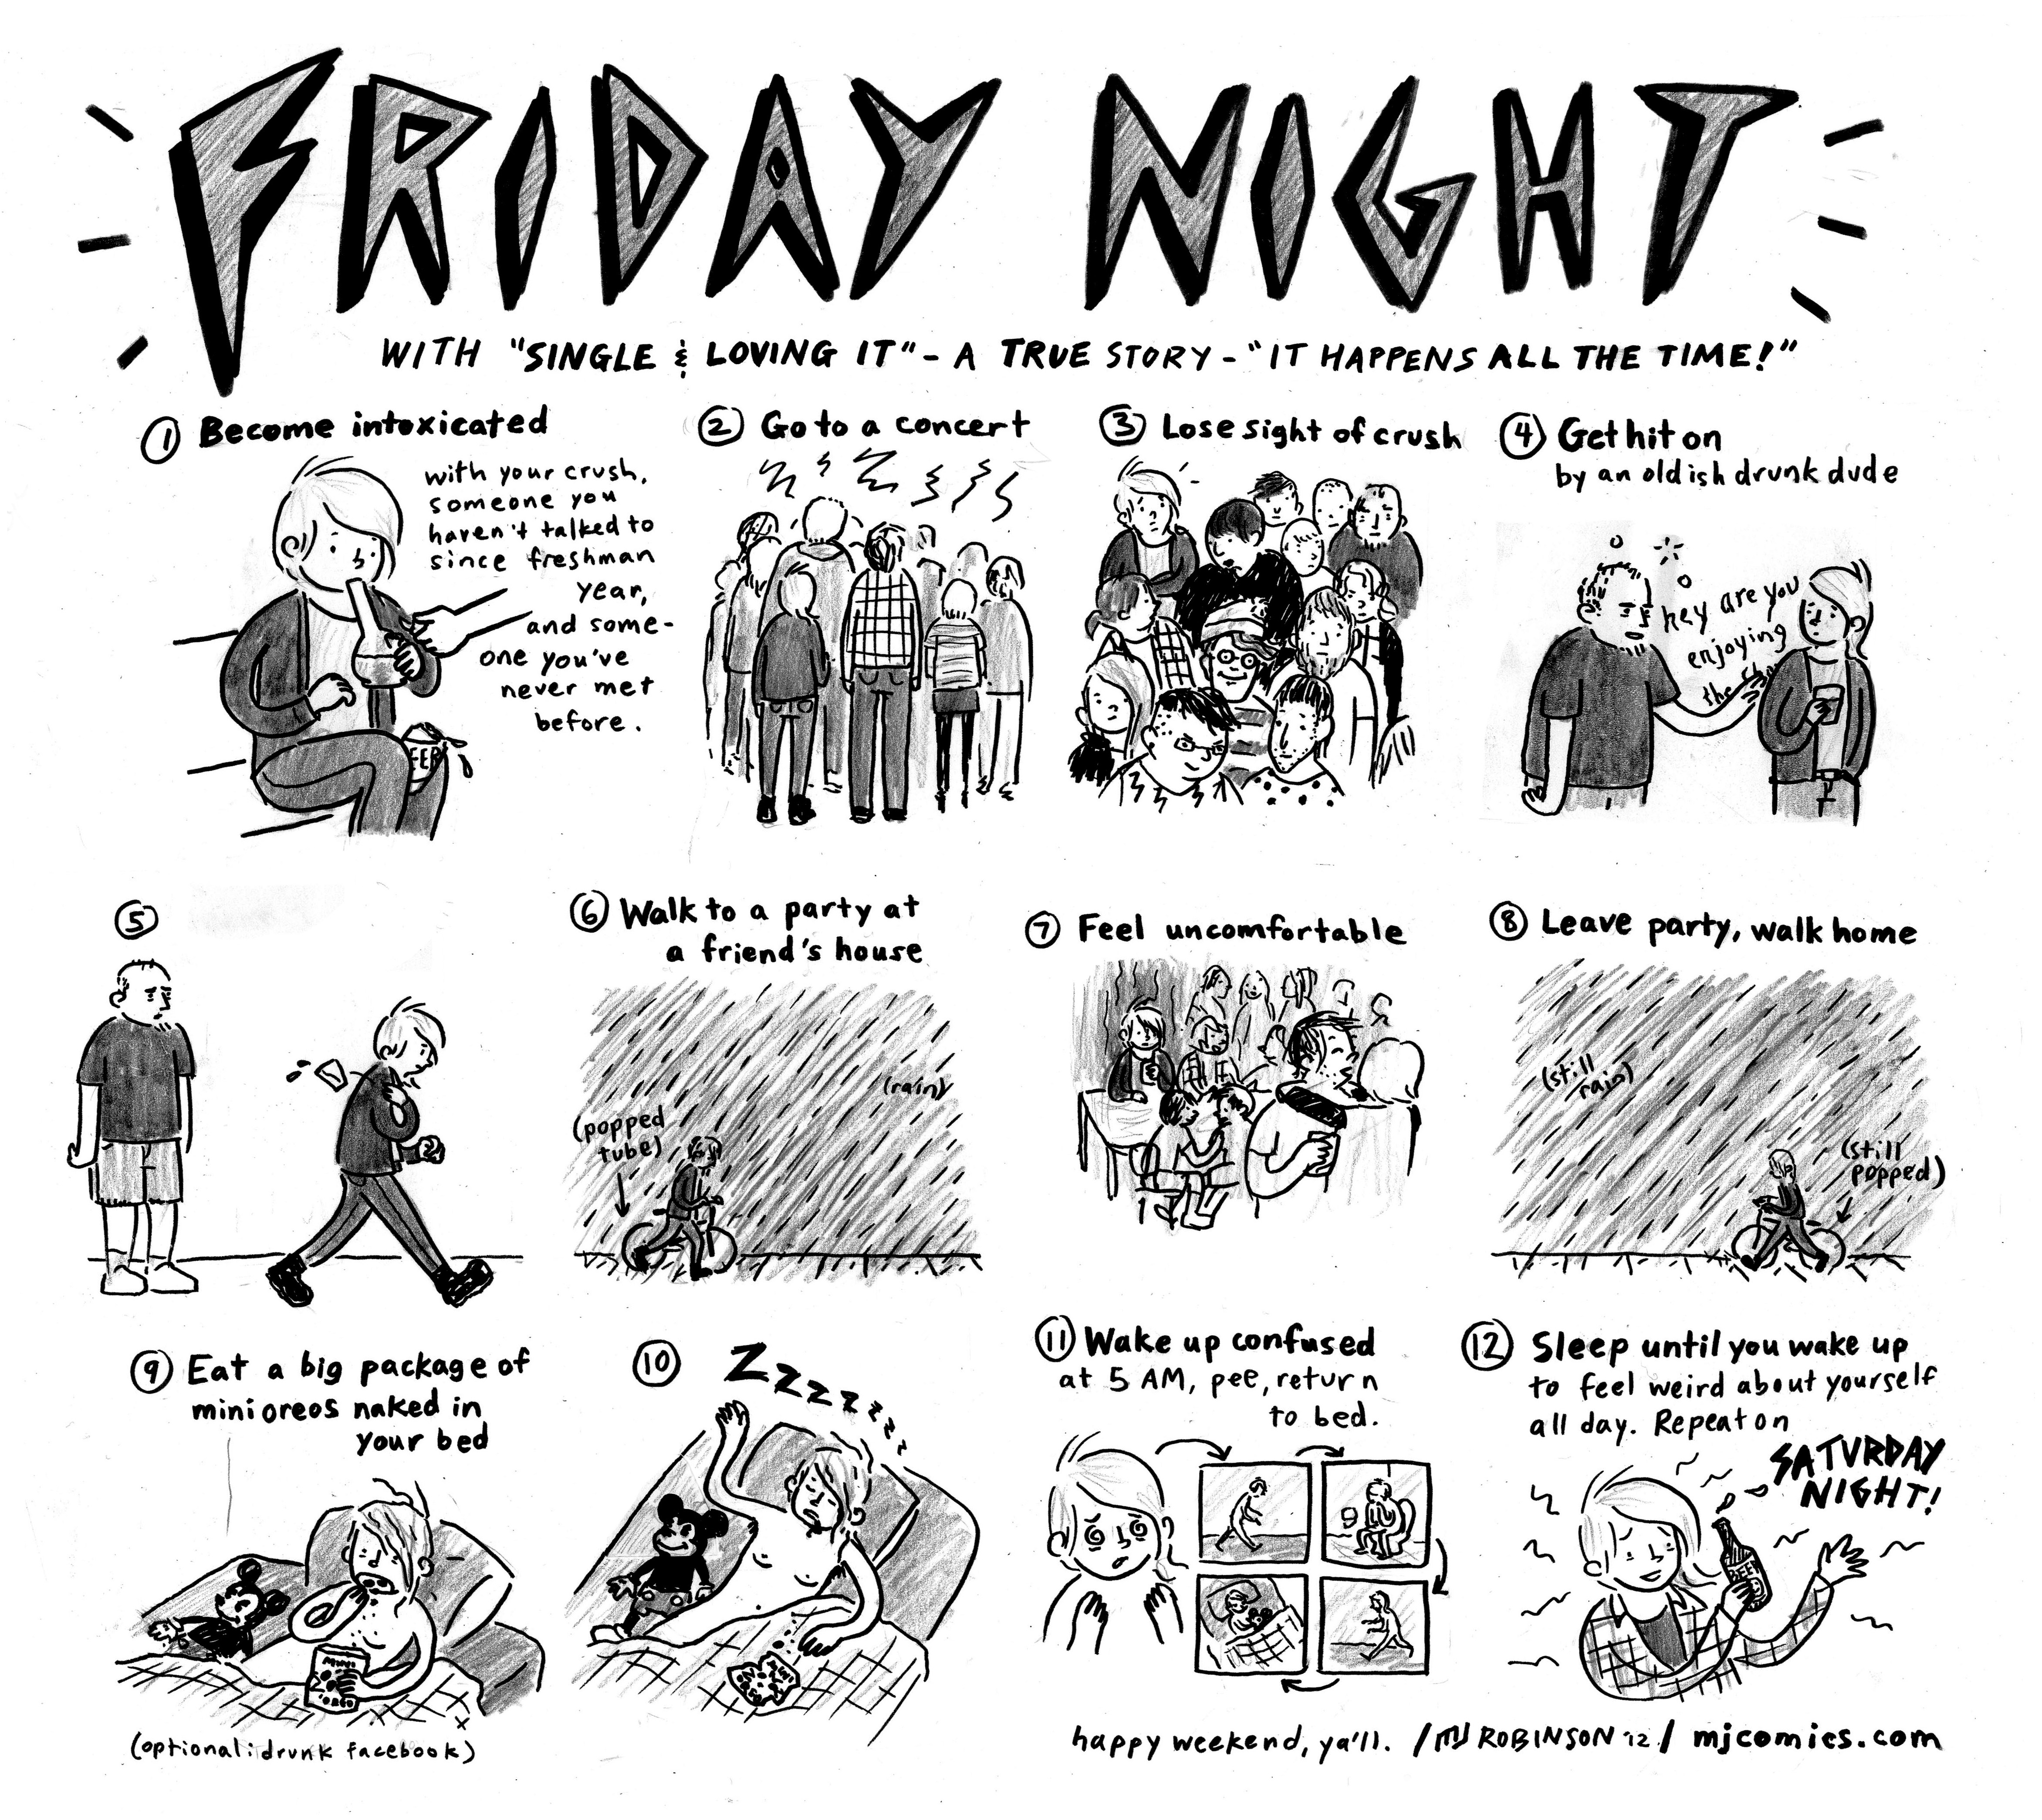 FRIDAY NIGHT
WITH "SINGLE & LOVING IT" - A TRUE STORY - "IT HAPPENS ALL THE TIME!"
① Become intoxicated
with your crush,
someone you
haven't talked to
since freshman
year,
and some-
one you've
never met
before.
BEER
② Go to a concert
③ Lose sight of crush
④ Get hit on
by an oldish drunk dude
hey are you
enjoying
the
⑤
⑥ Walk to a party at
a friend's house
(rain)
(popped
tube)
⑦ Feel uncomfortable
⑧ Leave party, walk home
(still
rain)
(still
popped)
⑨ Eat a big package of
mini oreos naked in
your bed
MINI
OREO
(optional: drunk facebook)
⑩ Zzzzzzzz
⑪ Wake up confused
at 5 AM, pee, return
to bed.
⑫ Sleep until you wake up
to feel weird about yourself
all day. Repeat on
SATURDAY
NIGHT!
BEER
happy weekend, ya'll. / MJ ROBINSON '12 / mjcomics.com